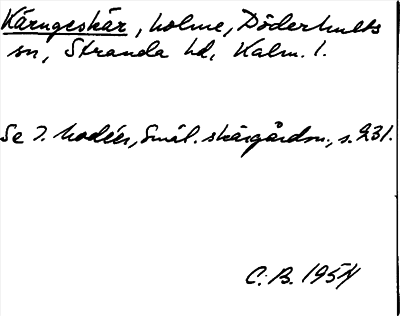 Kärngeskär, holme, Döderhults
sn, Stranda hd, Kalm. l.
Se I. Modéer, Smål. skärgårdsn., s. 231.
C. B. 1954